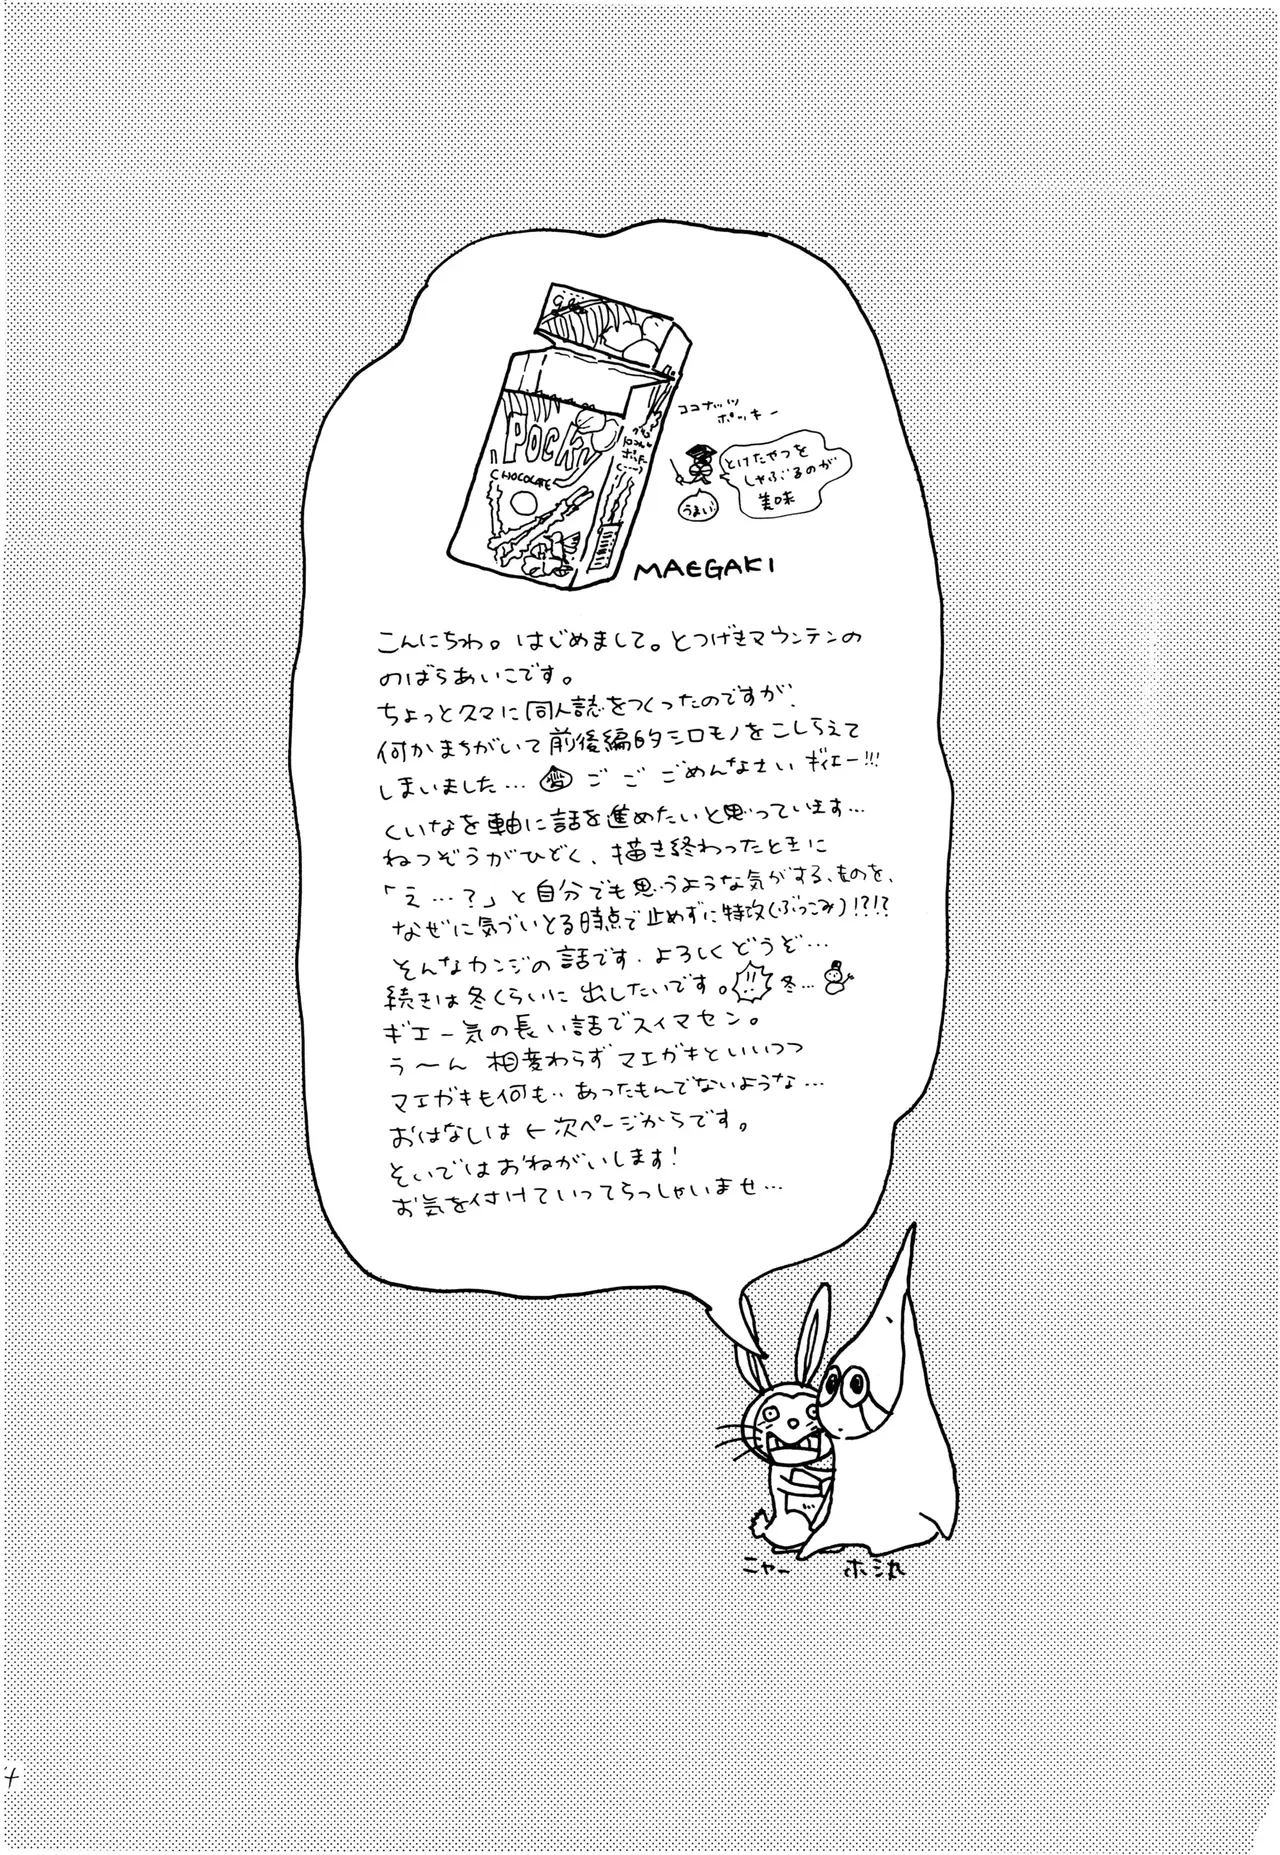 POCKY
CHOCOLATE
ココナッツ
ポッキー
とけたやつを
しゃぶるのが
美味
うまい
MAEGAKI
こんにちわ。はじめまして。とつげきマウンテンの
のばらあいこです。
ちょっと久々に同人誌をつくったのですが、
何かまちがいて前後編的シロモノをこしらえて
しまいました… ご ご ごめんなさい ギィエー!!!
くいなを軸に話を進めたいと思っています…
ねつぞうがひどく、描き終わったときに
「え…?」と自分でも思うような気がする、ものを、
なぜに気づいとる時点で止めずに特攻(ぶっこみ)!?!?
そんなカンジの話です。よろしくどうぞ…
続きは冬くらいに出したいです。!! 冬…
ギエー気の長い話でスイマセン。
う〜ん 相変わらずマエガキといいつつ
マエガキも何も‥あったもんでないような…
おはなしは←次ページからです。
そいではおねがいします!
お気を付けていってらっしゃいませ…
ニャー ホシ丸
4